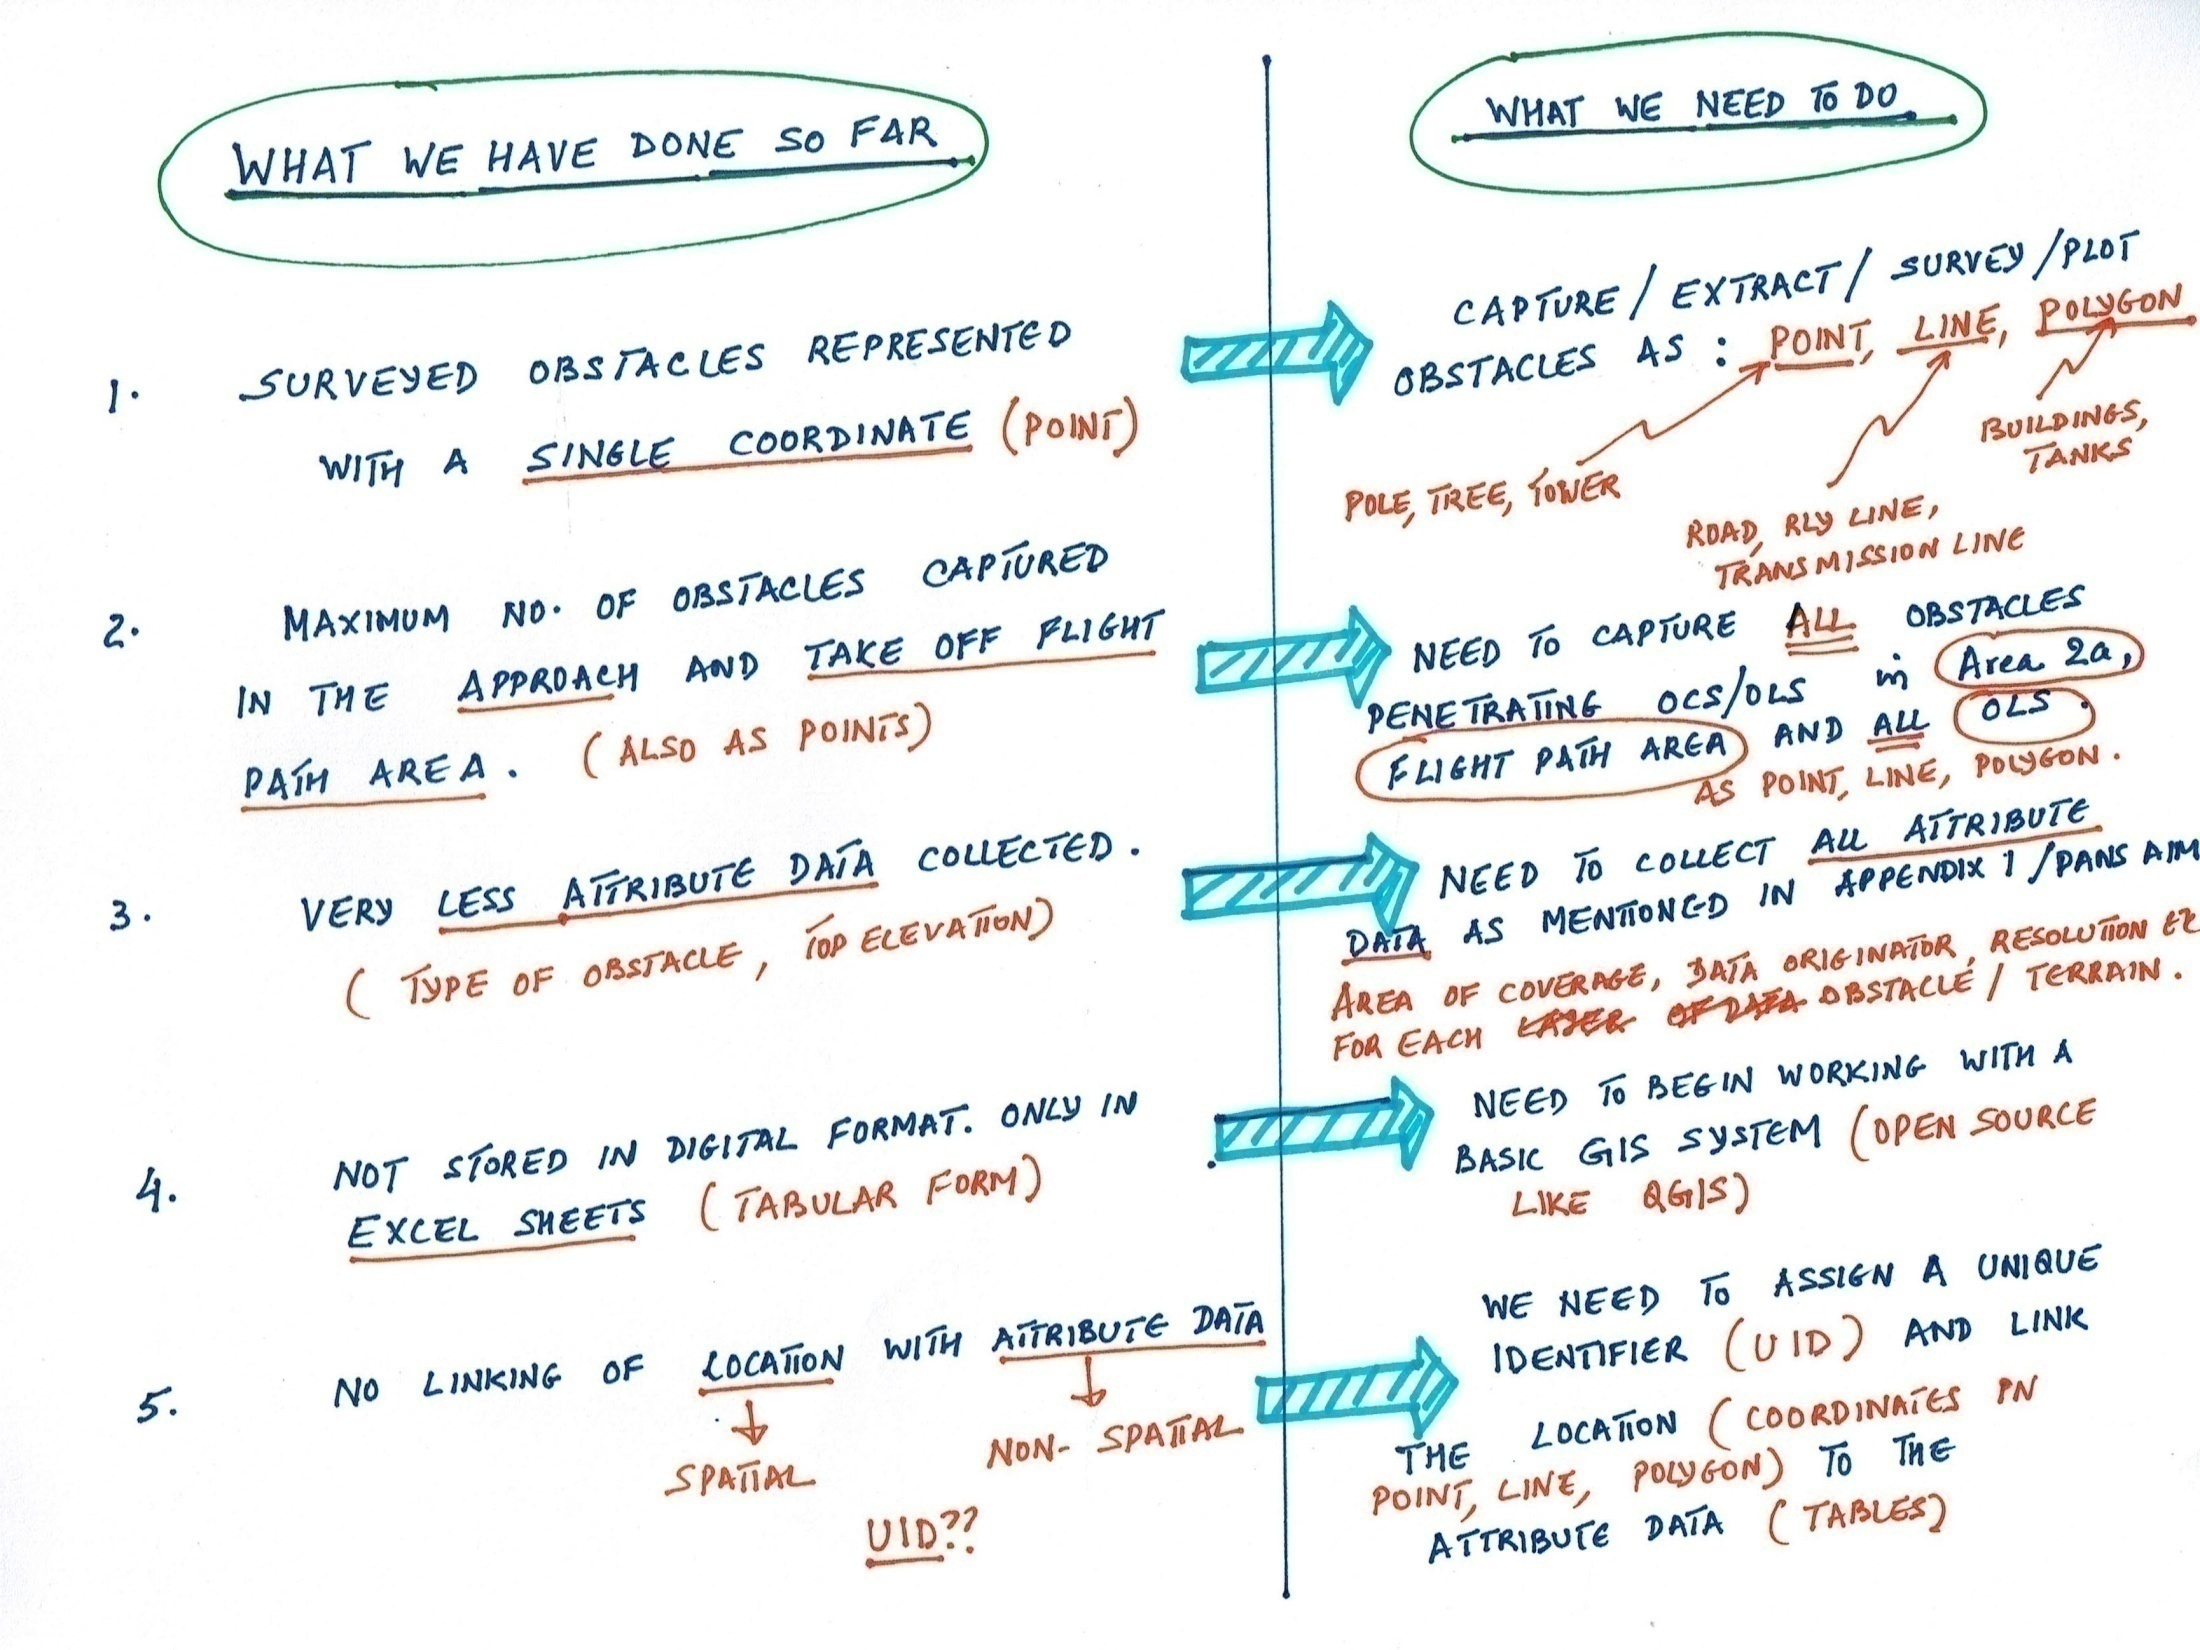 WHAT WE HAVE DONE SO FAR
1. SURVEYED OBSTACLES REPRESENTED
WITH A SINGLE COORDINATE (POINT)
2. MAXIMUM NO. OF OBSTACLES CAPTURED
IN THE APPROACH AND TAKE OFF FLIGHT
PATH AREA. (ALSO AS POINTS)
3. VERY LESS ATTRIBUTE DATA COLLECTED.
( TYPE OF OBSTACLE, TOP ELEVATION)
4. NOT STORED IN DIGITAL FORMAT. ONLY IN
EXCEL SHEETS (TABULAR FORM)
5. NO LINKING OF LOCATION WITH ATTRIBUTE DATA
SPATIAL
NON- SPATIAL
UID??
WHAT WE NEED TO DO
CAPTURE / EXTRACT / SURVEY /PLOT
OBSTACLES AS : POINT, LINE, POLYGON
POLE, TREE, TOWER
ROAD, RLY LINE,
TRANSMISSION LINE
BUILDINGS,
TANKS
NEED TO CAPTURE ALL OBSTACLES
PENETRATING OCS/OLS in Area 2a,
FLIGHT PATH AREA AND ALL OLS.
AS POINT, LINE, POLYGON.
NEED TO COLLECT ALL ATTRIBUTE
DATA AS MENTIONED IN APPENDIX 1 /PANS AIM
AREA OF COVERAGE, DATA ORIGINATOR, RESOLUTION
FOR EACH LAYER OF DATA OBSTACLE / TERRAIN.
NEED TO BEGIN WORKING WITH A
BASIC GIS SYSTEM (OPEN SOURCE
LIKE QGIS)
WE NEED TO ASSIGN A UNIQUE
IDENTIFIER (UID) AND LINK
THE LOCATION (COORDINATES IN
POINT, LINE, POLYGON) TO THE
ATTRIBUTE DATA (TABLES)